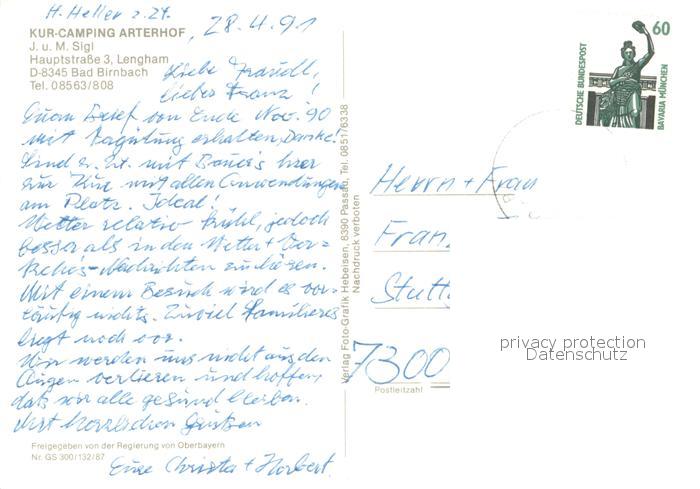 H. Heller z. Zt.
28.4.91
KUR-CAMPING ARTERHOF
J. u. M. Sigl
Hauptstraße 3, Lengham
D-8345 Bad Birnbach
Tel. 08563/808
Liebe Traudl,
lieber Franz!
Euren Brief von Ende Nov. 90
mit Vergütung erhalten, Danke!
Sind z. Zt. mit Bauers hier
zur Kur mit allen Anwendungen
am Platz. Ideal!
Wetter relativ kühl, jedoch
besser als in den Wetter +
Nachrichten
Mit einem Besuch wird es vor-
läufig nichts. Zuviel Familieres
liegt noch vor.
Wir werden uns nicht aus den
Augen verlieren und hoffen,
daß wir alle gesund bleiben.
Mit herzlichen Grüßen
Eure Christa + Herbert.
Freigegeben von der Regierung von Oberbayern
Nr. GS 300/132/87
Verlag Foto-Grafik Hebeisen, 8390 Passau, Tel. 0851/6338
Nachdruck verboten
60
DEUTSCHE BUNDESPOST
BAVARIA MÜNCHEN
Herrn + Frau
Fran
Stutt
7300
Postleitzahl
privacy protection
Datenschutz